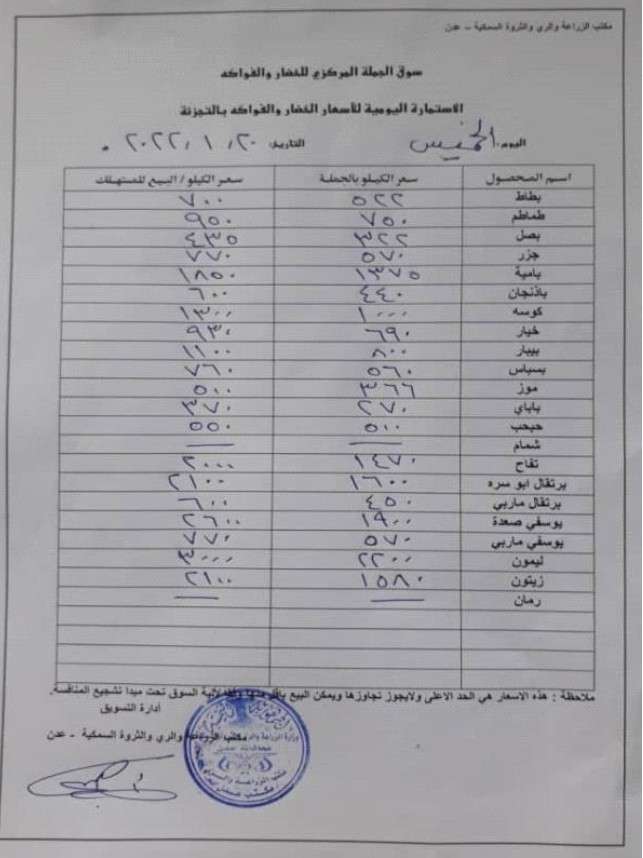 مكتب الزراعة والري والثروة السمكية - عدن
سوق الجملة المركزي للخضار والفواكه
الاستمارة اليومية لأسعار الخضار والفواكه بالتجزئة
اليوم: الخميس التاريخ: ٢٠ / ١ / ٢٠٢٢ .
اسم المحصول سعر الكيلو بالجملة سعر الكيلو / البيع للمستهلك
بطاط ٥٢٢ ٧٠٠
طماطم ٧٥٠ ٩٥٠
بصل ٣٢٢ ٤٣٥
جزر ٥٧٠ ٧٧٠
بامية ١٣٧٥ ١٨٥٠
باذنجان ٤٤٠ ٦٠٠
كوسه ١٠٠٠ ١٣٠٠
خيار ٦٩٠ ٩٣٠
بيبار ٨٠٠ ١١٠٠
بسباس ٥٦٠ ٧٦٠
موز ٣٦٦ ٥٠٠
باباي ٢٧٠ ٣٧٠
حبحب ٥٠٠ ٥٥٠
شمام — —
تفاح ١٤٧٠ ٢٠٠٠
برتقال ابو سره ١٦٠٠ ٢١٠٠
برتقال ماربي ٤٥٠ ٦٠٠
يوسفي صعدة ١٩٠٠ ٢٦٠٠
يوسفي ماربي ٥٧٠ ٧٧٠
ليمون ٢٢٠٠ ٣٠٠٠
زيتون ١٥٨٠ ٢١٠٠
رمان — —
ملاحظة : هذه الاسعار هي الحد الاعلى ولايجوز تجاوزها ويمكن البيع السوق تحت مبدا تشجيع المنافسة.
أدارة التسويق
مكتب الزراعة والري والثروة السمكية - عدن